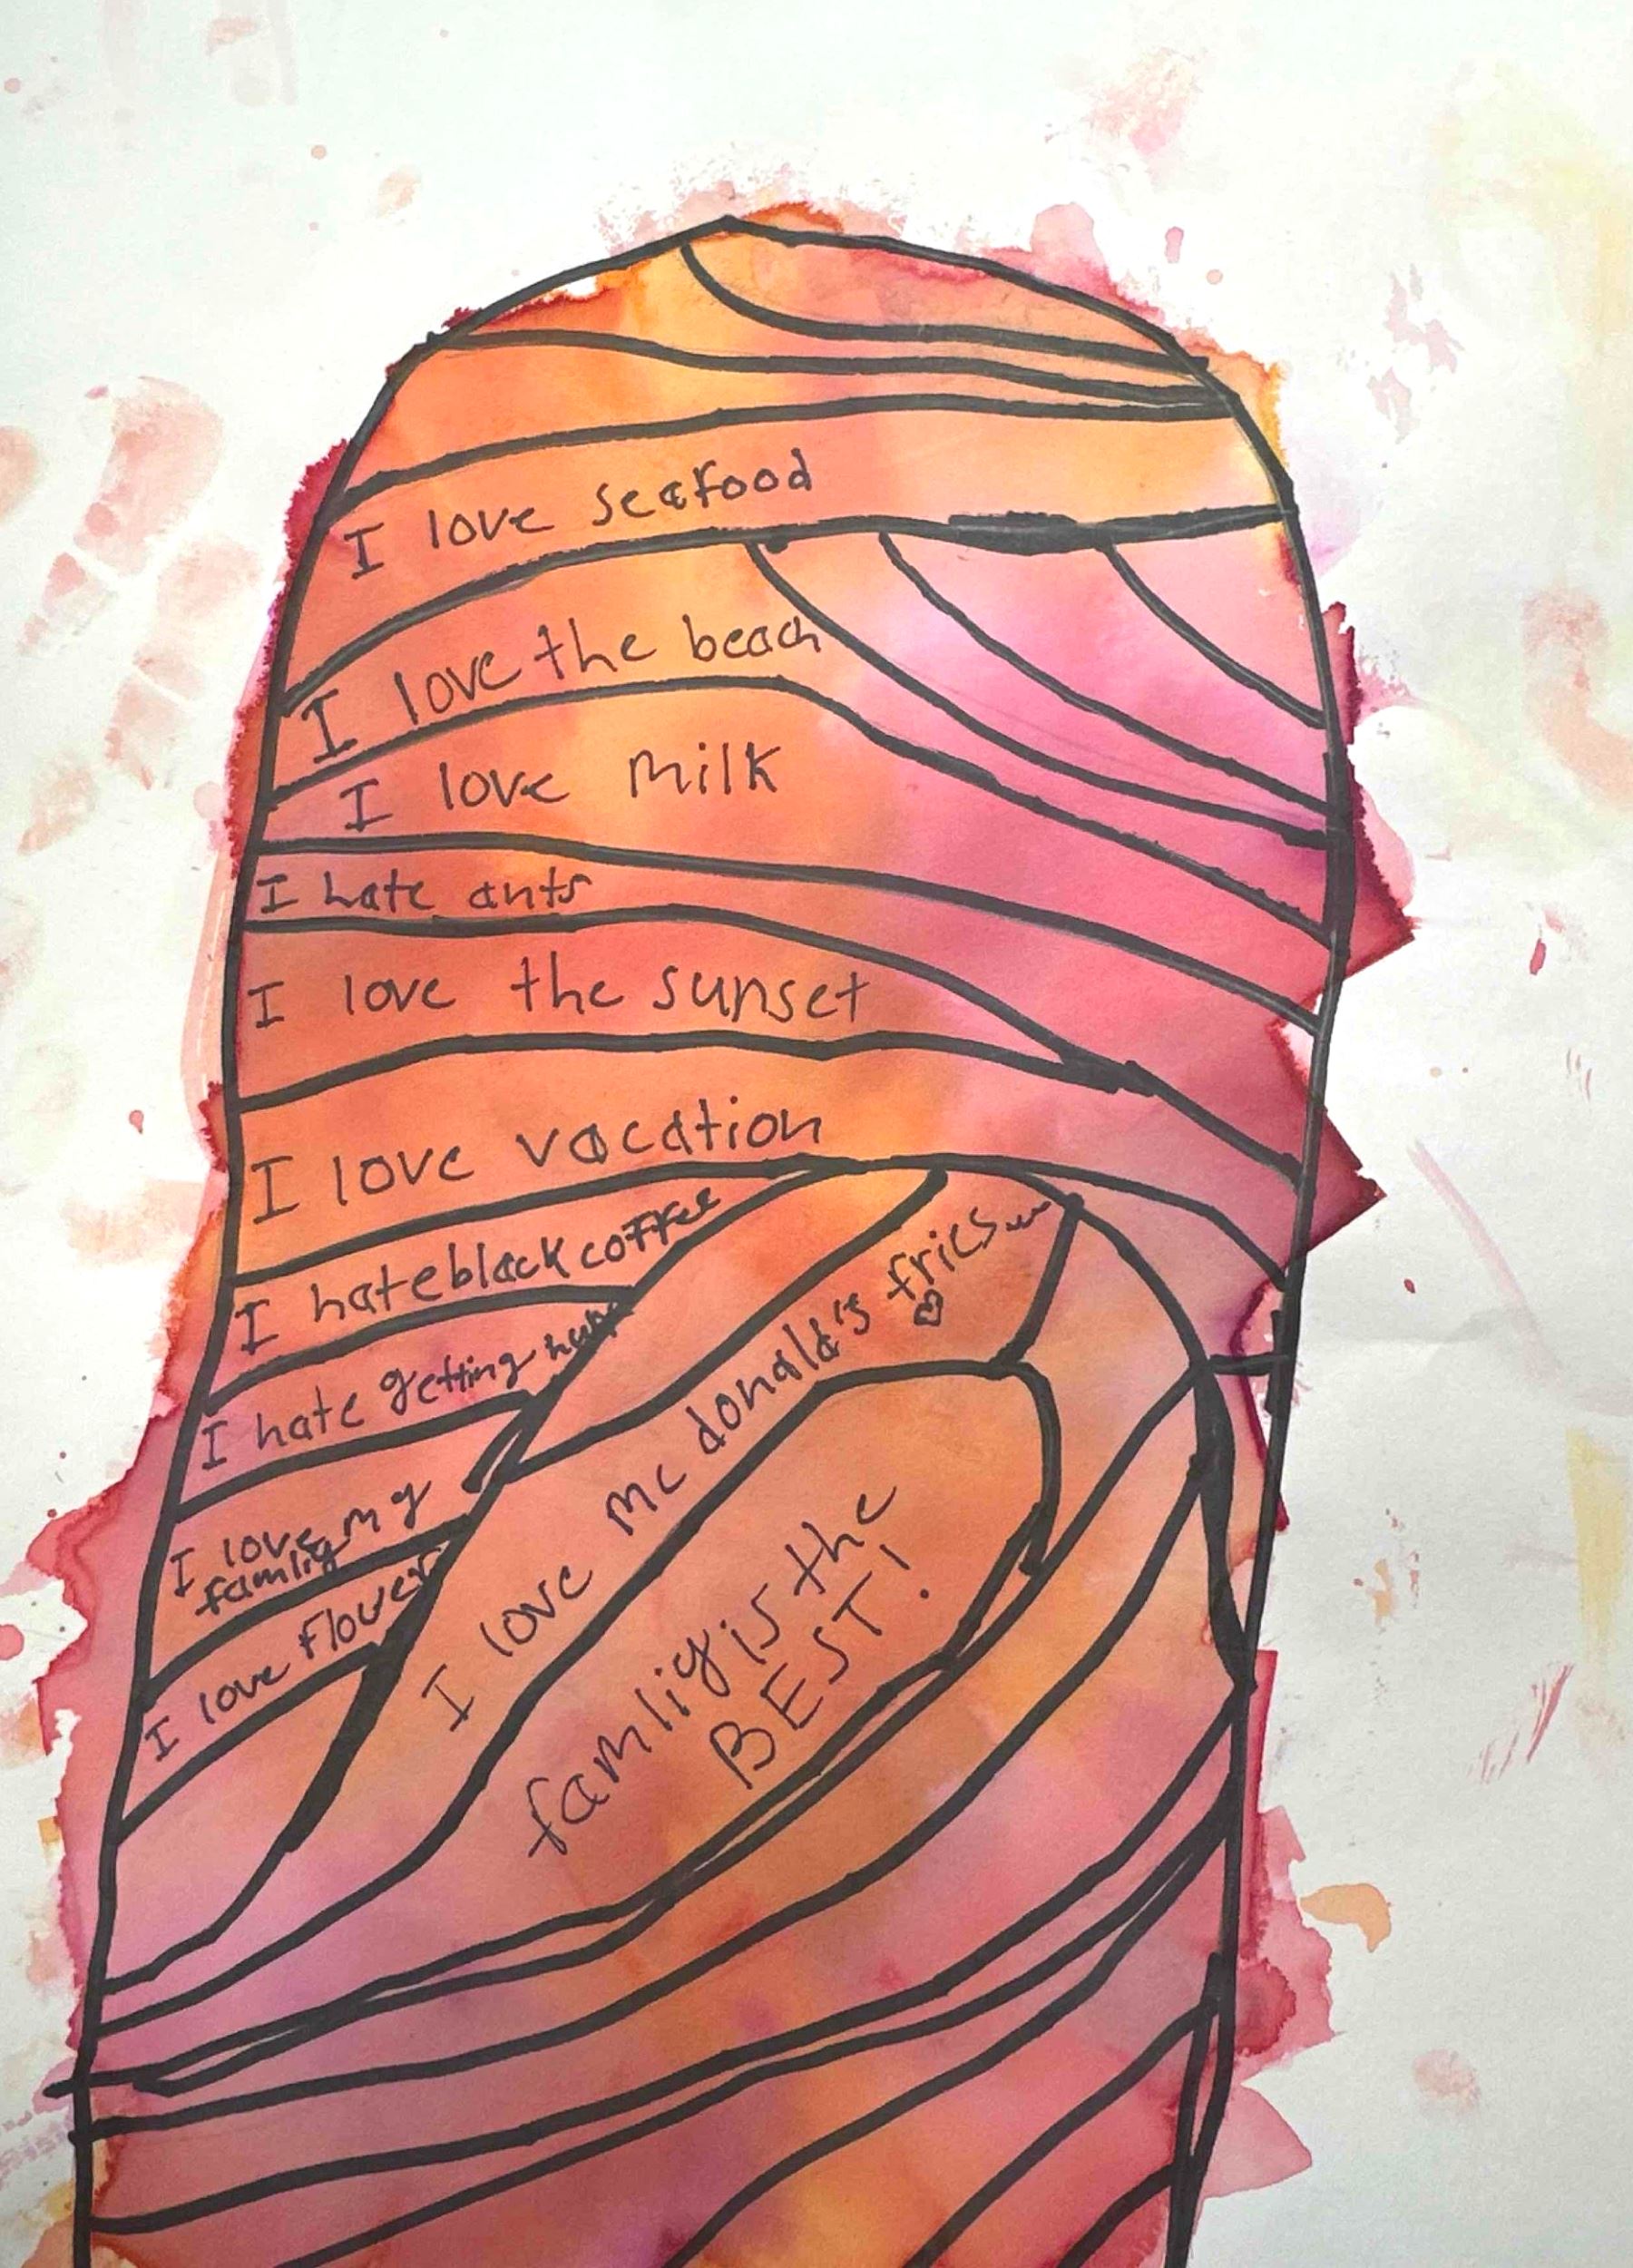 I love seafood
I love the beach
I love milk
I hate ants
I love the sunset
I love vacation
I hate black coffee
I hate getting
I love my
famliy
I love flower
I love mc donald's fries
famliy is the
BEST!